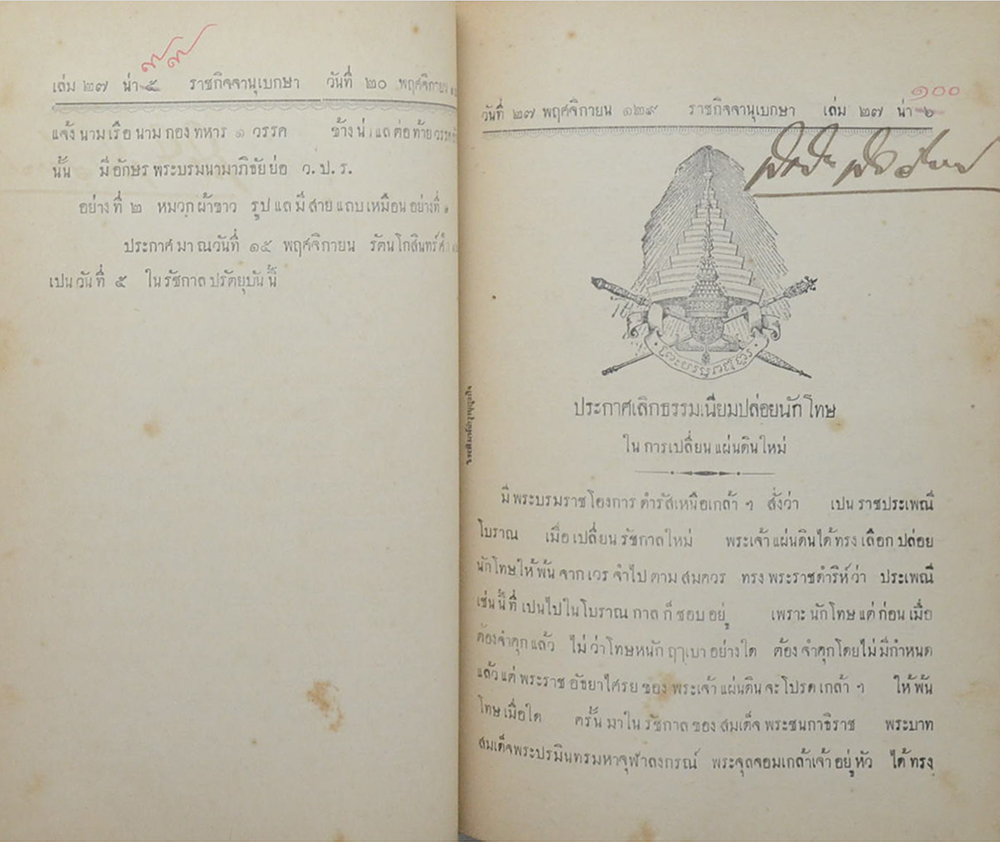 ๙๙
เล่ม ๒๗ น่า ๕ ราชกิจจานุเบกษา วันที่ ๒๐ พฤศจิกายน
แจ้งนามเรือ นามกองทหาร ๑ วรรค ข้างน่า แลต่อท้ายวรรค
นั้น มีอักษรพระบรมนามาภิธัยย่อ ว.ป.ร.
อย่างที่ ๒ หมวกผ้าขาว รูปแลมีสายแถบเหมือนอย่างที่ ๑
ประกาศมาณวันที่ ๑๕ พฤศจิกายน รัตนโกสินทร์
เปนวันที่ ๕ ในรัชกาลปรัตยุบันนี้
๑๐๐
วันที่ ๒๗ พฤศจิกายน ๑๒๙ ราชกิจจานุเบกษา เล่ม ๒๗ น่า ๖
ประกาศเลิกธรรมเนียมปล่อยนักโทษ
ในการเปลี่ยนแผ่นดินใหม่
มีพระบรมราชโองการดำรัสเหนือเกล้าฯ สั่งว่า เปนราชประเพณี
โบราณ เมื่อเปลี่ยนรัชกาลใหม่ พระเจ้าแผ่นดินได้ทรงเลือกปล่อย
นักโทษให้พ้นจากเวรจำไปตามสมควร ทรงพระราชดำริห์ว่า ประเพณี
เช่นนี้ที่เปนไปในโบราณกาลก็ชอบอยู่ เพราะนักโทษแต่ก่อนเมื่อ
ต้องจำคุกแล้ว ไม่ว่าโทษหนักฤๅเบาอย่างใด ต้องจำคุกโดยไม่มีกำหนด
แล้วแต่พระราชอัธยาไศรยของพระเจ้าแผ่นดินจะโปรดเกล้าฯ ให้พ้น
โทษเมื่อใด ครั้นมาในรัชกาลของสมเด็จพระชนกาธิราช พระบาท
สมเด็จพระปรมินทรมหาจุฬาลงกรณ์ พระจุลจอมเกล้าเจ้าอยู่หัว ได้ทรง